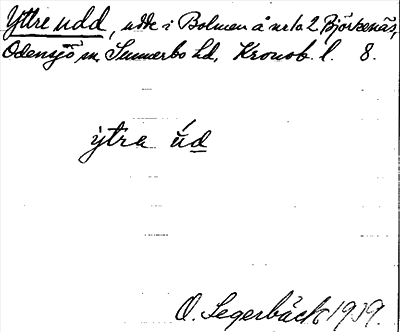 Yttre udd, udde i Bolmen å nr 1a2 Björkenäs,
Odensjö sn, Sunnerbo hd, Kronob. l. 8.
ytra ud
O. Segerbäck 1939.